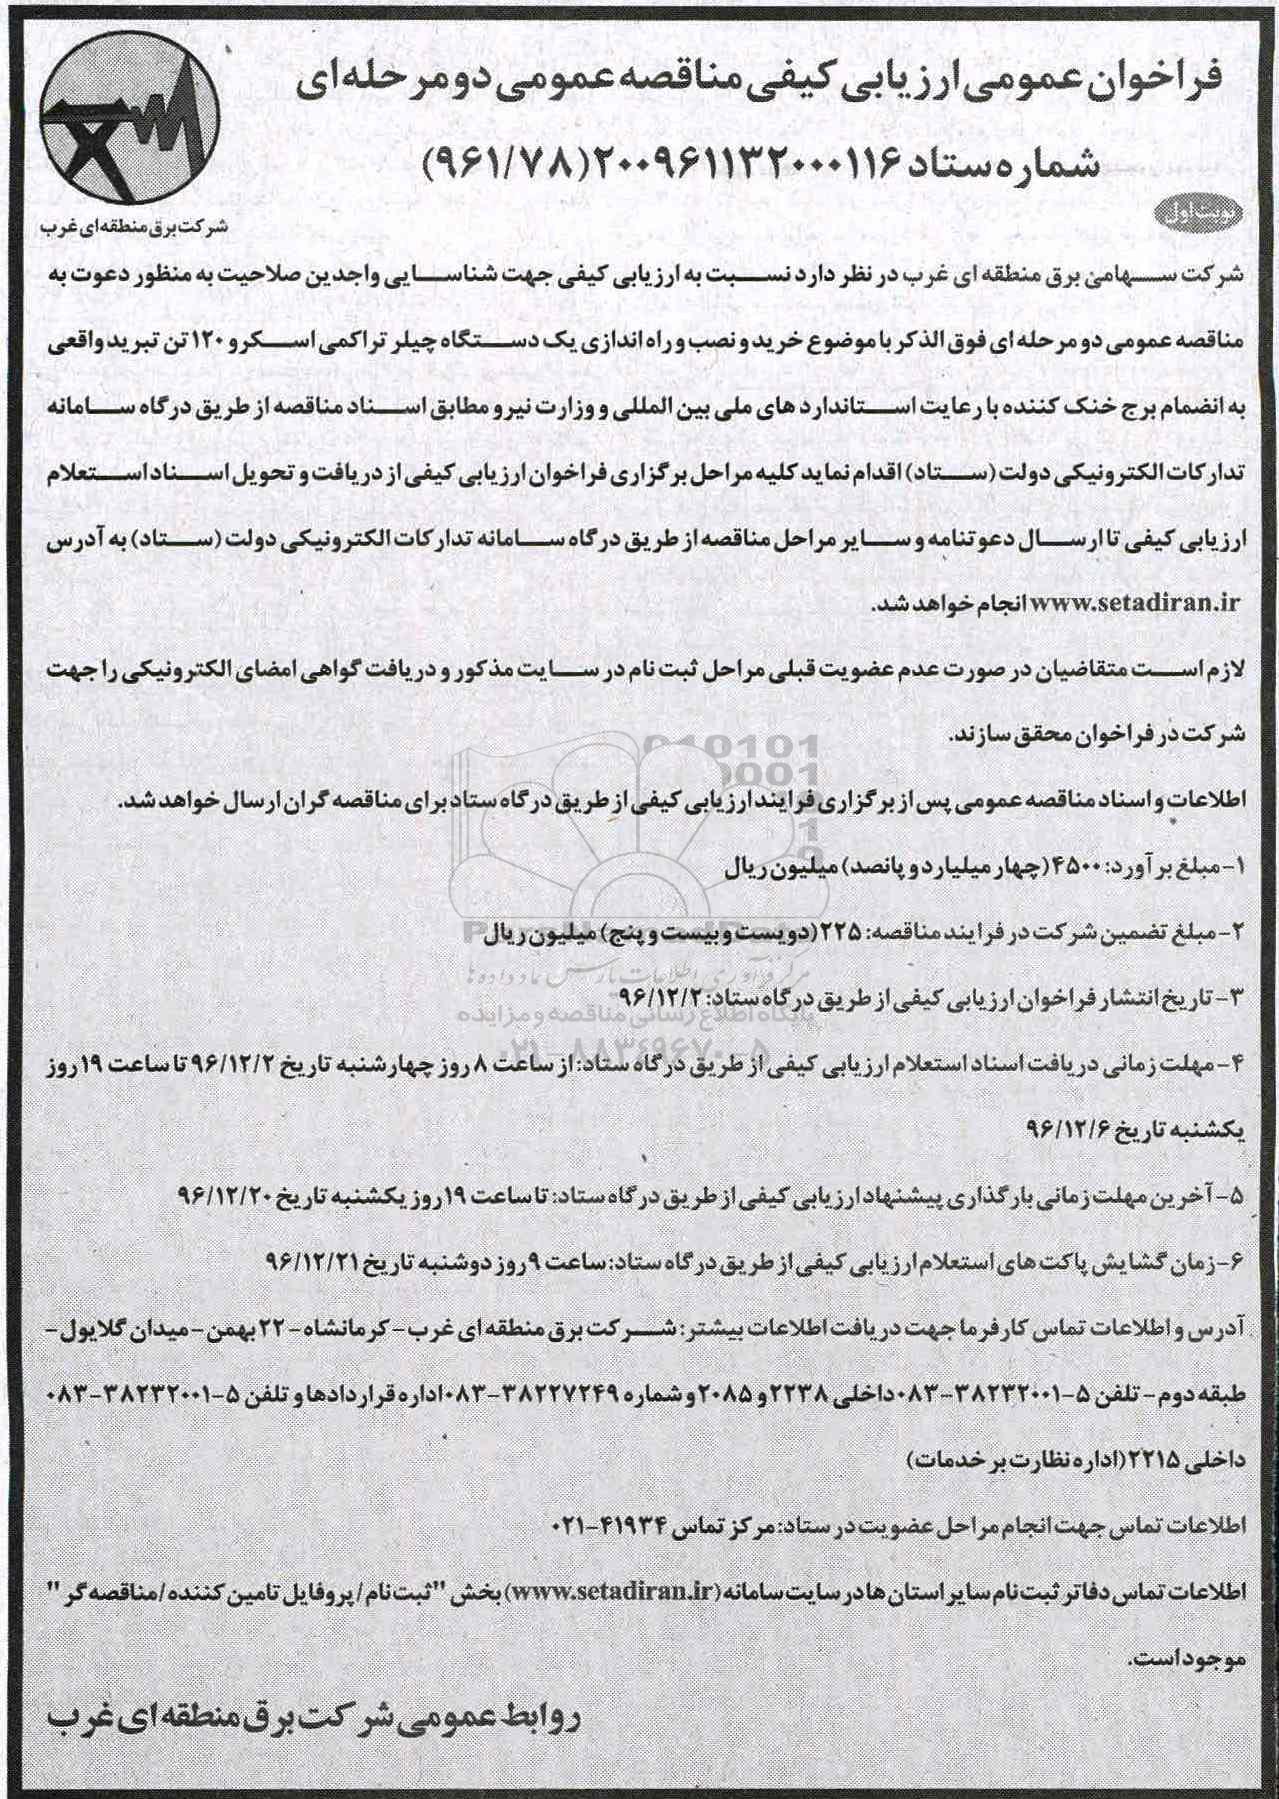 فراخوان عمومی ارزیابی کیفی مناقصه عمومی دو مرحله ای
شماره ستاد ۲۰۰۹۶۱۱۳۲۰۰۰۱۱۶ (۹۶۱/۷۸)
شرکت برق منطقه ای غرب
نوبت اول
شرکت سهامی برق منطقه ای غرب در نظر دارد نسبت به ارزیابی کیفی جهت شناسایی واجدین صلاحیت به منظور دعوت به
مناقصه عمومی دو مرحله ای فوق الذکر با موضوع خرید و نصب و راه اندازی یک دستگاه چیلر تراکمی اسکرو ۱۲۰ تن تبرید واقعی
به انضمام برج خنک کننده با رعایت استاندارد های ملی بین المللی و وزارت نیرو مطابق اسناد مناقصه از طریق درگاه سامانه
تدارکات الکترونیکی دولت (ستاد) اقدام نماید کلیه مراحل برگزاری فراخوان ارزیابی کیفی از دریافت و تحویل اسناد استعلام
ارزیابی کیفی تا ارسال دعوتنامه و سایر مراحل مناقصه از طریق درگاه سامانه تدارکات الکترونیکی دولت (ستاد) به آدرس
www.setadiran.ir انجام خواهد شد.
لازم است متقاضیان در صورت عدم عضویت قبلی مراحل ثبت نام در سایت مذکور و دریافت گواهی امضای الکترونیکی را جهت
شرکت در فراخوان محقق سازند.
اطلاعات و اسناد مناقصه عمومی پس از برگزاری فرایند ارزیابی کیفی از طریق درگاه ستاد برای مناقصه گران ارسال خواهد شد.
۱- مبلغ برآورد: ۴۵۰۰ (چهار میلیارد و پانصد) میلیون ریال
۲- مبلغ تضمین شرکت در فرایند مناقصه: ۲۲۵ (دویست و بیست و پنج) میلیون ریال
مرکز فرآوری اطلاعات پارس ماد داده ها
۳- تاریخ انتشار فراخوان ارزیابی کیفی از طریق درگاه ستاد: ۹۶/۱۲/۲
پایگاه اطلاع رسانی مناقصه و مزایده
۰۲۱-۸۸۳۴۹۶۷۰-۵
۴- مهلت زمانی دریافت اسناد استعلام ارزیابی کیفی از طریق درگاه ستاد: از ساعت ۸ روز چهارشنبه تاریخ ۹۶/۱۲/۲ تا ساعت ۱۹ روز
یکشنبه تاریخ ۹۶/۱۲/۶
۵- آخرین مهلت زمانی بارگذاری پیشنهاد ارزیابی کیفی از طریق درگاه ستاد: تا ساعت ۱۹ روز یکشنبه تاریخ ۹۶/۱۲/۲۰
۶- زمان گشایش پاکت های استعلام ارزیابی کیفی از طریق درگاه ستاد: ساعت ۹ روز دوشنبه تاریخ ۹۶/۱۲/۲۱
آدرس و اطلاعات تماس کارفرما جهت دریافت اطلاعات بیشتر: شرکت برق منطقه ای غرب - کرمانشاه - ۲۲ بهمن - میدان گلایول -
طبقه دوم - تلفن ۵-۳۸۲۳۲۰۰۱-۰۸۳ داخلی ۲۲۳۸ و ۲۰۸۵ و شماره ۳۸۲۲۷۲۴۹-۰۸۳ اداره قراردادها و تلفن ۵-۳۸۲۳۲۰۰۱-۰۸۳
داخلی ۲۲۱۵ (اداره نظارت بر خدمات)
اطلاعات تماس جهت انجام مراحل عضویت در ستاد: مرکز تماس ۴۱۹۳۴-۰۲۱
اطلاعات تماس دفاتر ثبت نام سایر استان ها در سایت سامانه (www.setadiran.ir) بخش "ثبت نام / پروفایل تامین کننده / مناقصه گر"
موجود است.
روابط عمومی شرکت برق منطقه ای غرب